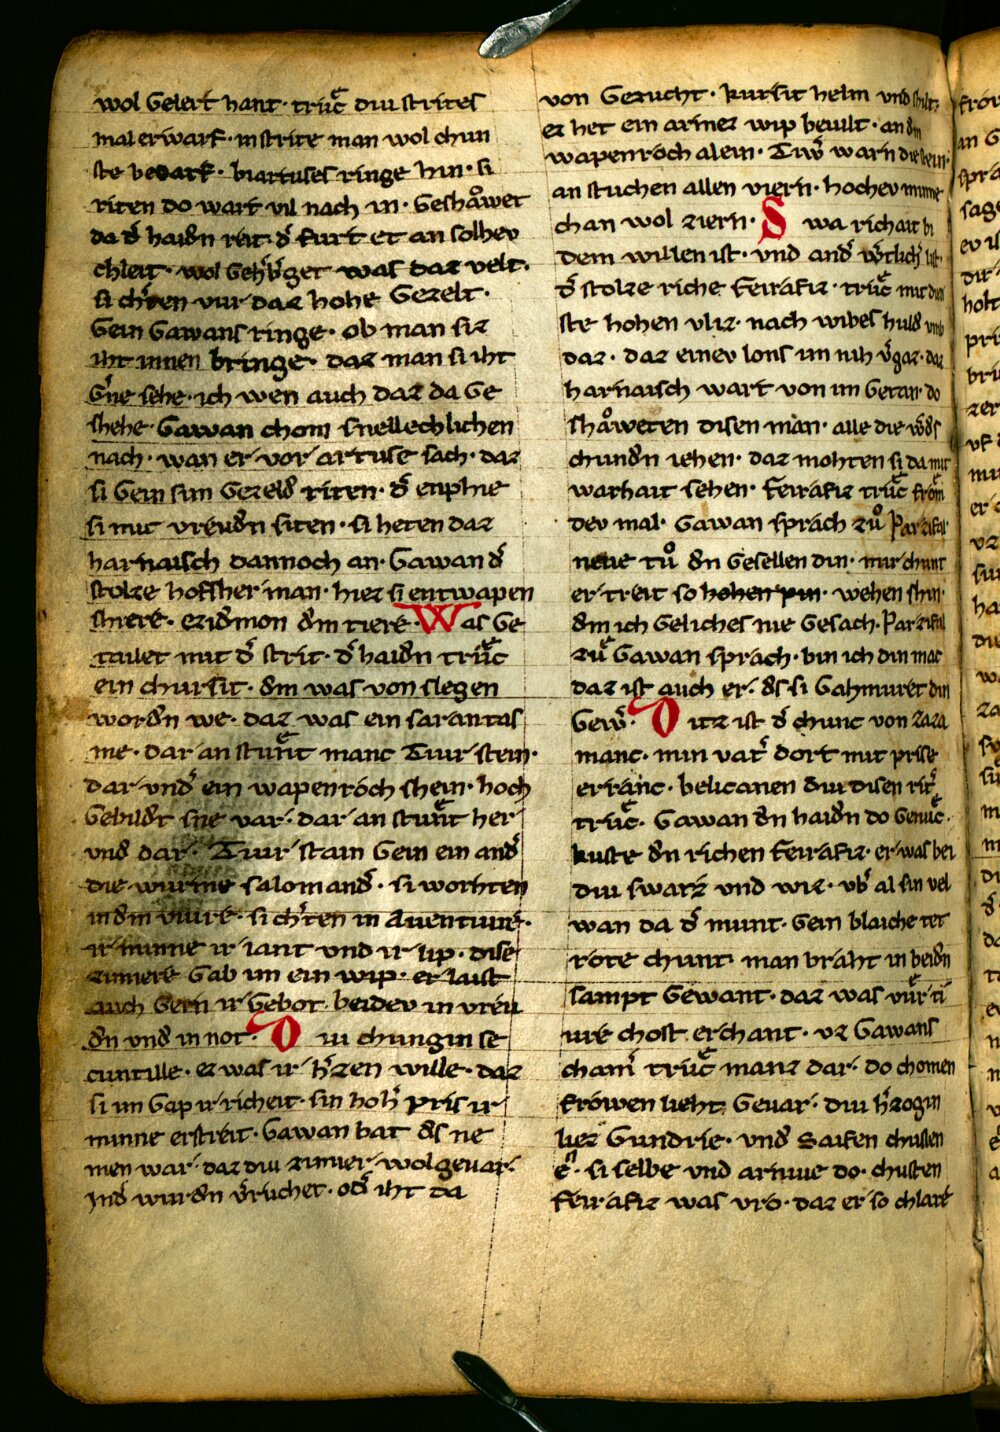 wol Gelert hant · truͦc diu strites
mal erwarf · in strite man wol chun
ste bedarf · biartuses ringe hin · si
riten do wart vil nach in · Geshaͮwet
da dˢ haidn reit · dˢ furt et an solhev
chleit · wol Gehˢbˢget was daz velt ·
si chˢten vur daz hohe Gezelt ·
Gein Gawans ringe · ob man siz
iht innen bringe · daz man si iht
Gˢne sehe · ich wen auch daz da Ge
shehe · Gawan chom snellechlichen
nach · wan er vor artuse sach · daz
si Gein sim Gezeld riten · dˢ enphie
si mit vreudn siten · si heten daz
harnaisch dannoch an · Gawan dˢ
stolze hoffsher man · hiez si entwapen
shiere · ezidmon dm tiere · Was Ge
tailet mit dˢ strit · dˢ haidn truͦc
ein chursit · dm was von slegen
wordn we · daz was ein sarantas
me · dar an stuͦnt manc Tiur stein ·
dar undˢ ein wapenroch shein · hoch
Gebildet sne var · dar an stuͦnt her
und dar · Tiur stain Gein ein andˢ
die wurme salomandˢ · si worhten
in dm viure · si chˢten in Aventiure ·
ir minne ir lant und ir lip · dise
zimiere Gab im ein wip · er laist
auch Gern ir Gebot · beidev in vreu
dn und in not · Diu chungin se
cuntille · ez was ir hˢzen wille · daz
si im Gap ir richeit · sin hohˢ pris ir
minne erstreit · Gawan bat ds ne
men war · daz diu zimier wol gevar ·
Ind wurdn vˢruchet · odˢ iht da
von Gezucht · kursit helm und shilt ·
ez het ein armez wip bevilt · an dm
wapenroch alein · Tiwˢ warn die stein ·
an stuchen allen viern · hochev minne
chan wol ziern · Swa richait bi
dem willen ist · und andˢ wˢtlichˢ list ·
dˢ stolze riche feirafiz · truͦc mit dien
ste hohen vliz · nach wibes huld umb
daz · daz einev lons im nih vˢgaz · daz
harnaisch wart von im Getan · do
shaͮweten disen man · alle die wˢds
chundn iehen · daz mohten si da mit
warhait sehen · feirafiz truͦc from
dev mal · Gawan sprach zuͦ Parzifal ·
neve tuͦ dn Gesellen din · mir chunt
er treit so hohen pin · wehen shin ·
dm ich Geliches nie Gesach · Parzifal
zuͦ Gawan sprach · bin ich din mac
daz ist auch er · ds si Gahmuret din
Gewˢ · Ditz ist dˢ chunc von zaza
manc · min vatˢ dort mit prise
erranc · belicanen diu disen ritˢ
truͦc · Gawan dn haidn do Genuͦc ·
kuste dn richen feirafiz · er was bei
diu swarz und wiz · ubˢ al sin vel
wan da dˢ munt · Gein blaiche tet
rote chunt · man braht in beidn
sampt Gewant · daz was vuͦr ti
wre chost erchant · vz Gawans
chamˢ truͦc manz dar · do chomen
frowen lieht Gevar · diu hˢzogin
liez Gundrie · und Saifen chussen
e · si selbe und arnive do · chusten
feirafiz was vro · daz er so chlare